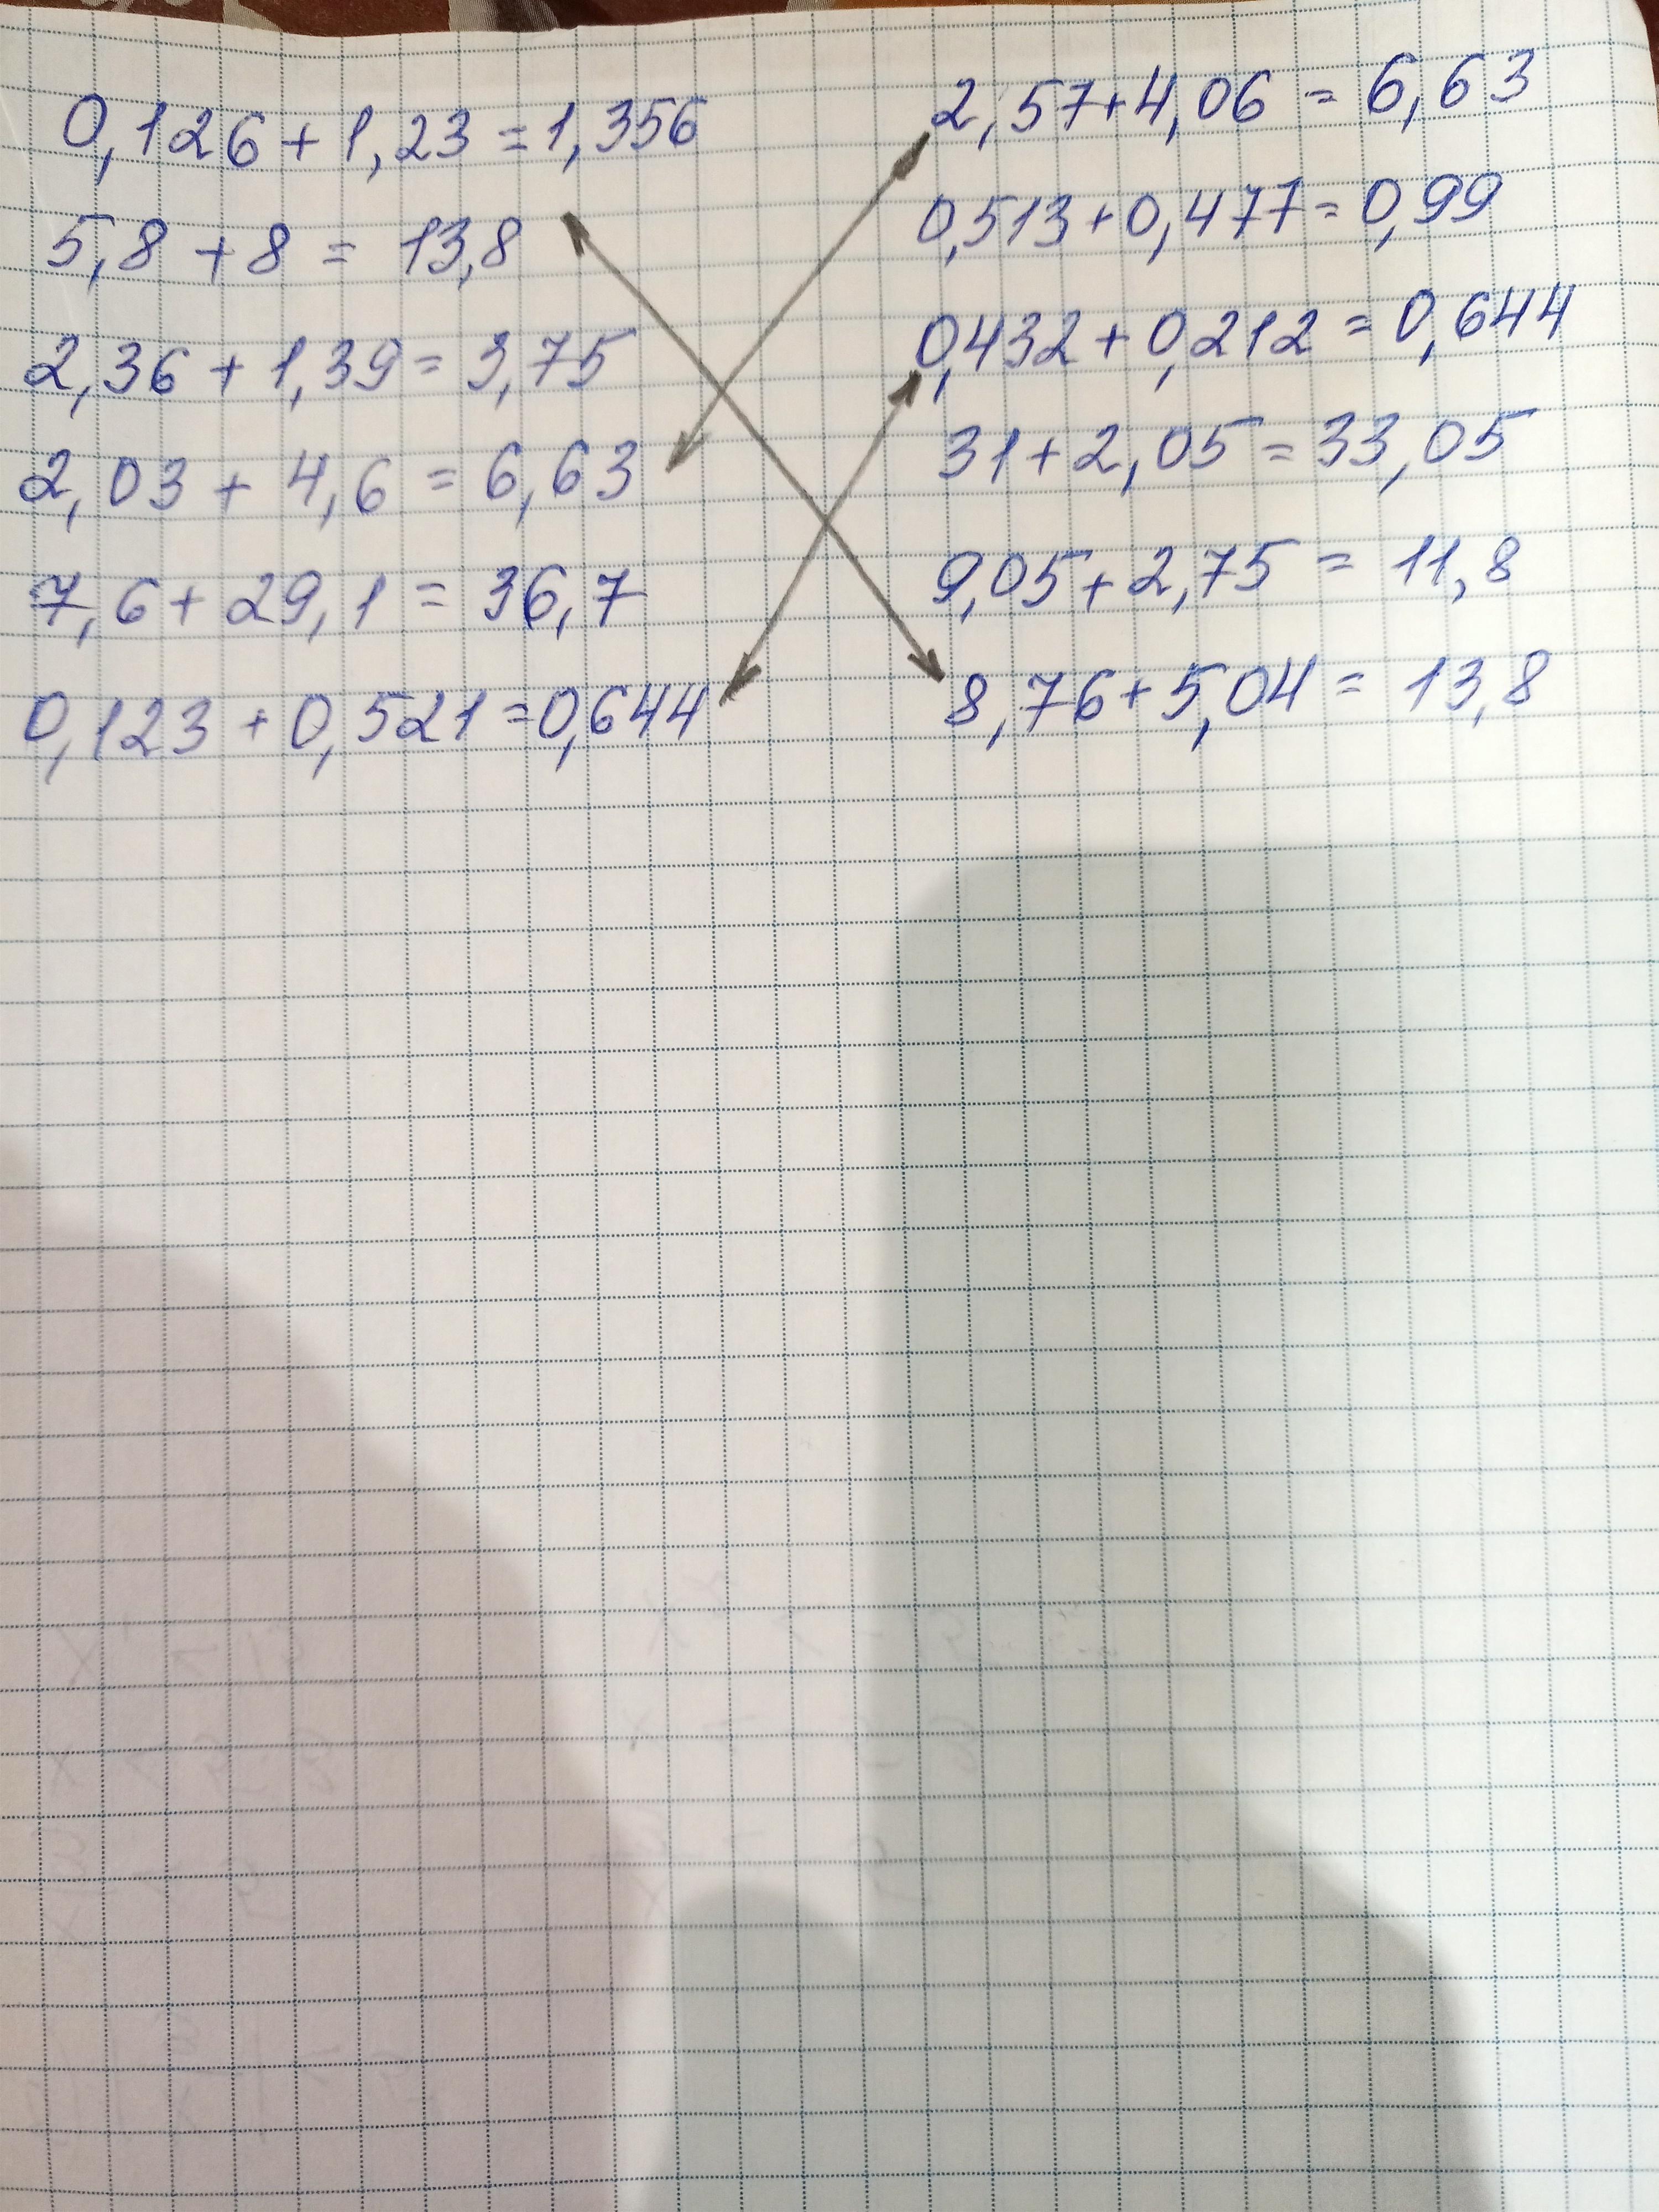 0,126 + 1,23 = 1,356
5,8 + 8 = 13,8
2,36 + 1,39 = 3,75
2,03 + 4,6 = 6,63
7,6 + 29,1 = 36,7
0,123 + 0,521 = 0,644
2,57 + 4,06 = 6,63
0,513 + 0,477 = 0,99
0,432 + 0,212 = 0,644
31 + 2,05 = 33,05
9,05 + 2,75 = 11,8
8,76 + 5,04 = 13,8